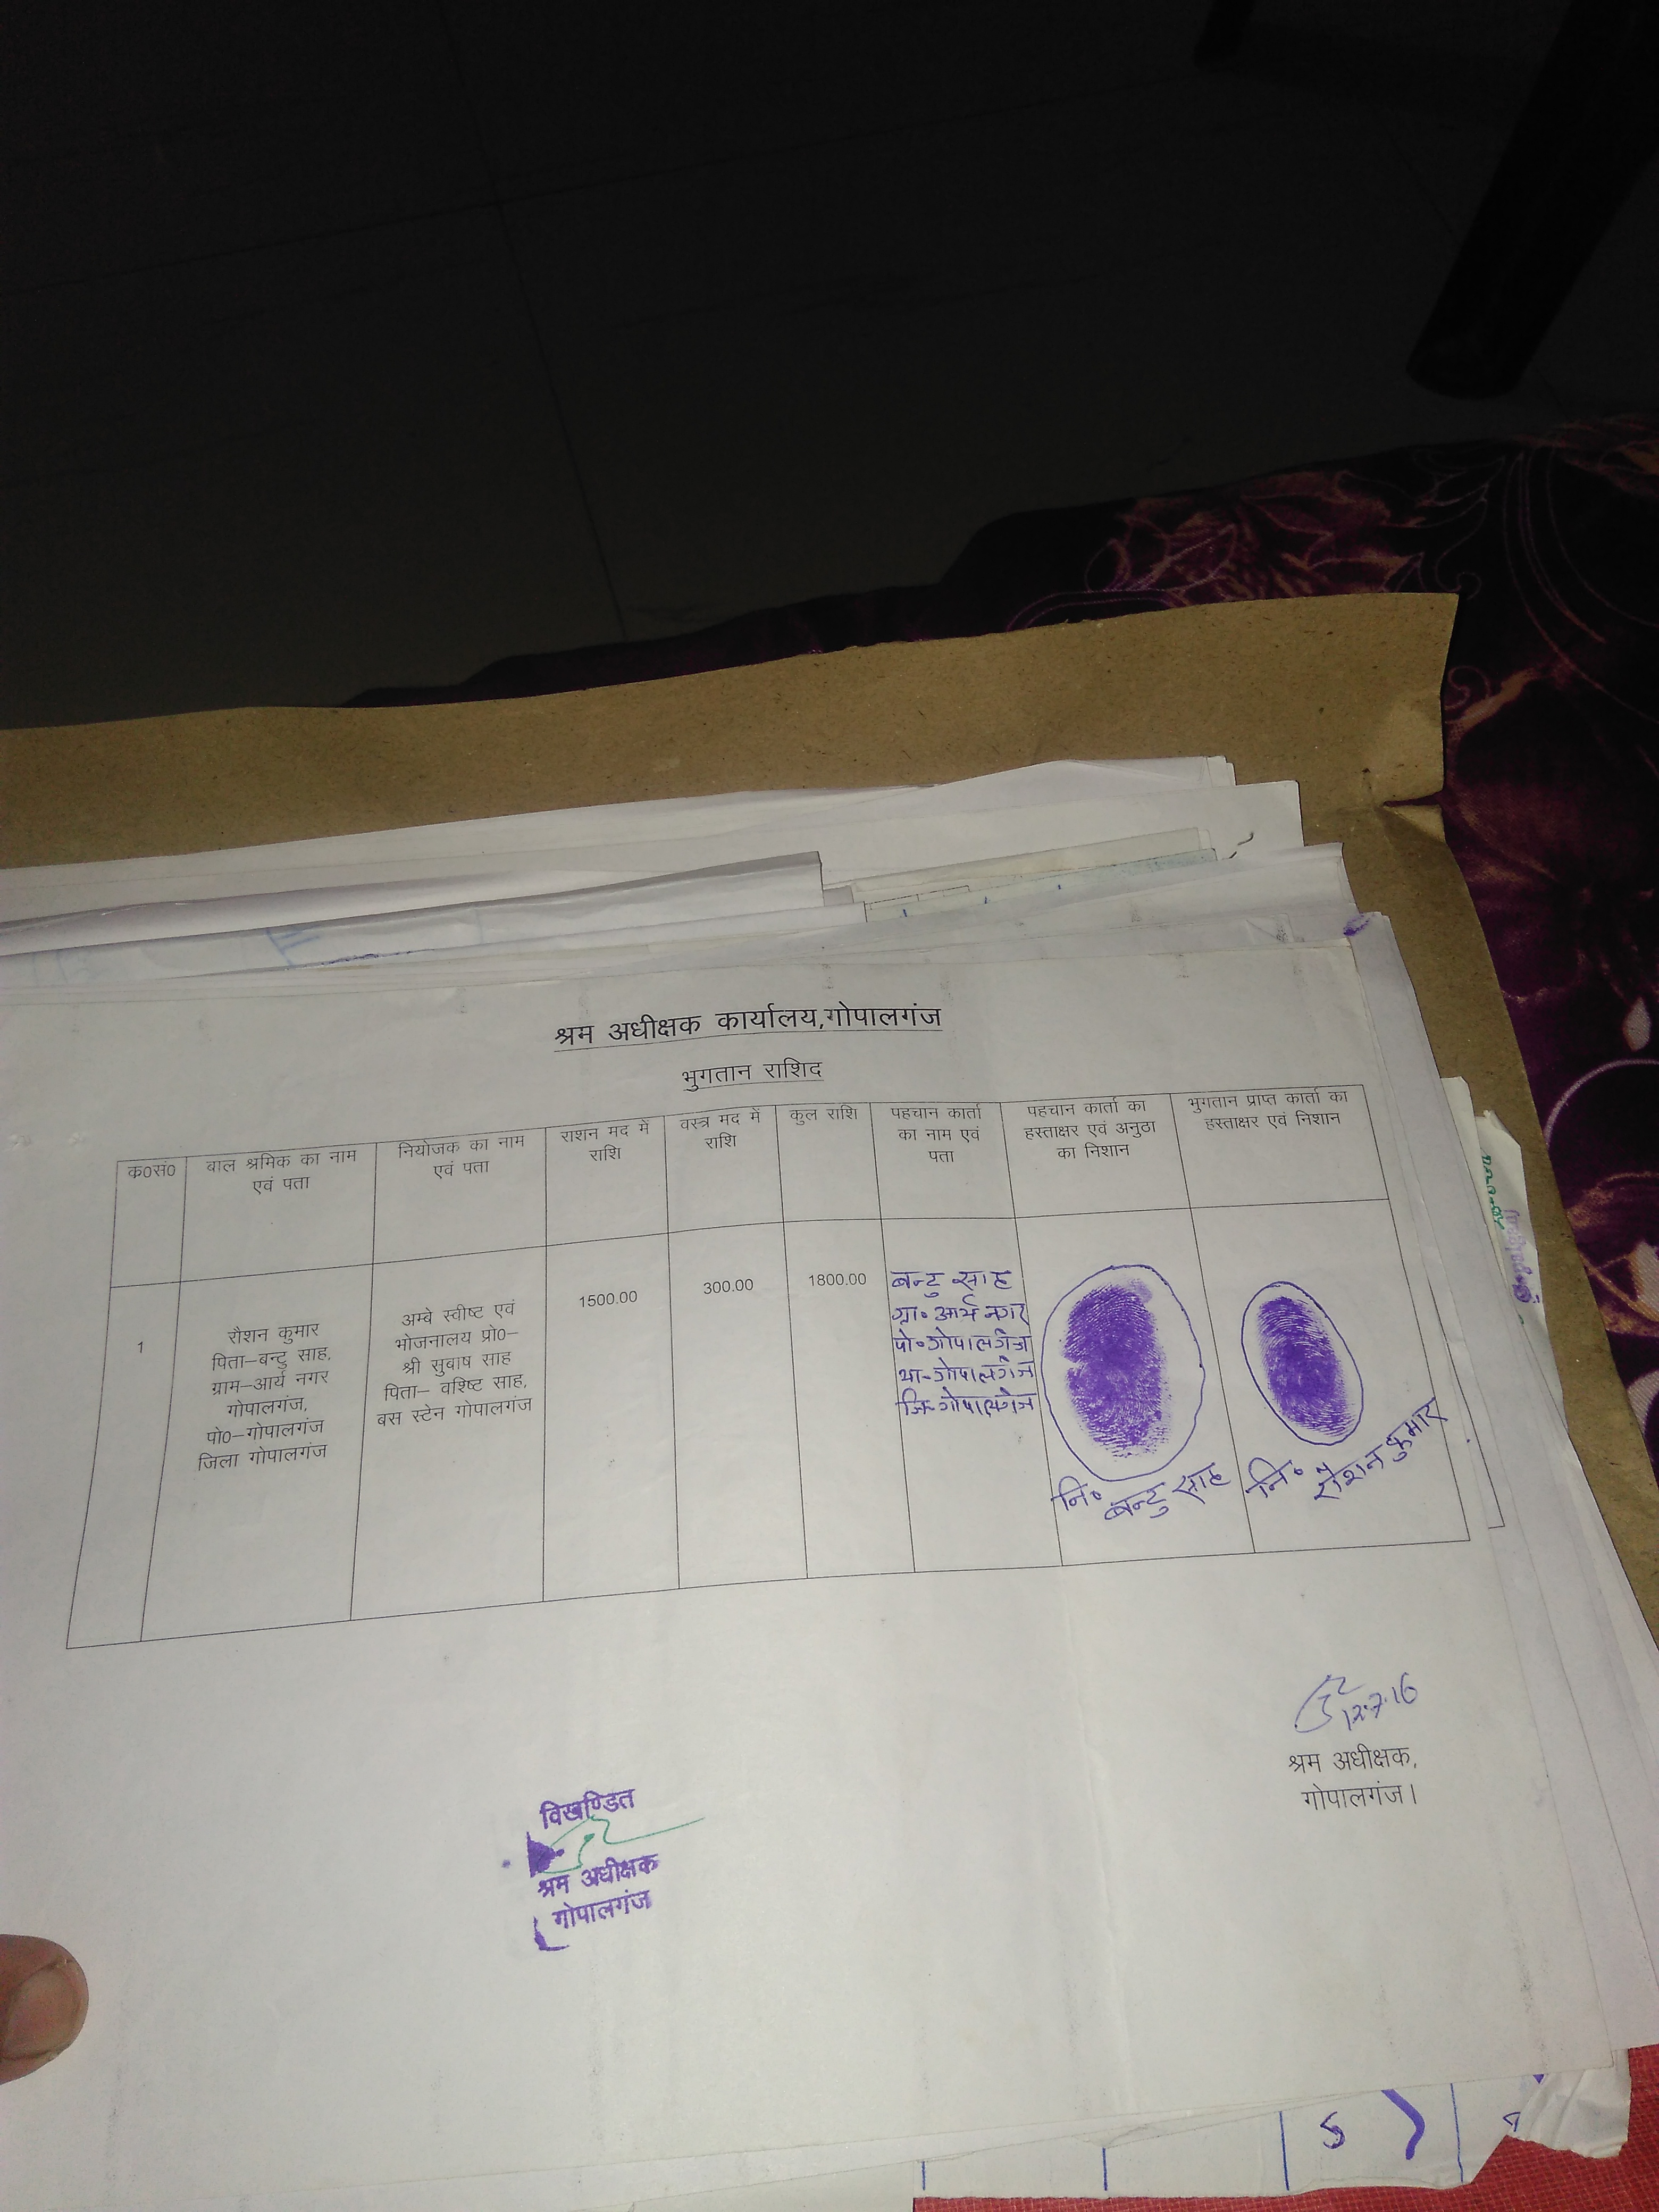 श्रम अधीक्षक कार्यालय,गोपालगंज
भुगतान राशिद
क०सं०
बाल श्रमिक का नाम
एवं पता
नियोजक का नाम
एवं पता
राशन मद में
राशि
वस्त्र मद में
राशि
कुल राशि
पहचान कार्ता
का नाम एवं
पता
पहचान कार्ता का
हस्ताक्षर एवं अनुठा
का निशान
भुगतान प्राप्त कार्ता का
हस्ताक्षर एवं निशान
1
रौशन कुमार
पिता–बन्टु साह,
ग्राम–आर्य नगर
गोपालगंज,
पो०–गोपालगंज
जिला गोपालगंज
अम्बे स्वीष्ट एवं
भोजनालय प्रो०–
श्री सुबाष साह
पिता– वश्ष्टि साह,
बस स्टेन गोपालगंज
1500.00
300.00
1800.00
बन्टु साह
ग्रा॰ आर्य नगर
पो॰ गोपालगंज
था-गोपालगंज
जि-गोपालगंज
नि॰ बन्टु साह
नि॰ रौशन कुमार
12.7.16
श्रम अधीक्षक,
गोपालगंज।
विखण्डित
श्रम अधीक्षक
गोपालगंज